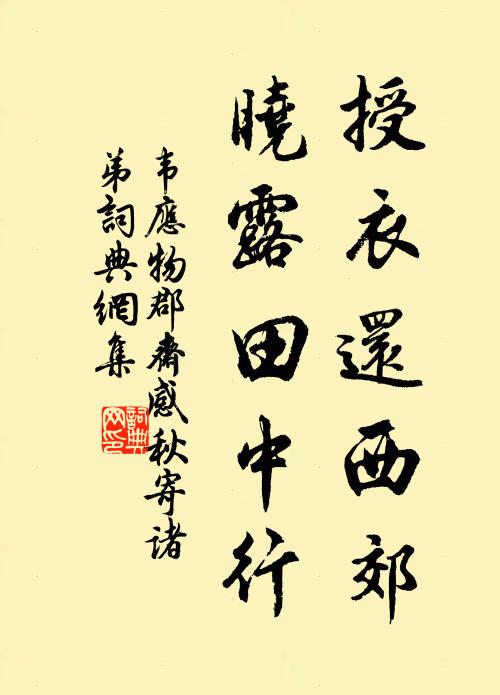 授衣還西郊
曉露田中行
韦應物郡齋感秋寄諸
弟詞典網集
詞典网印